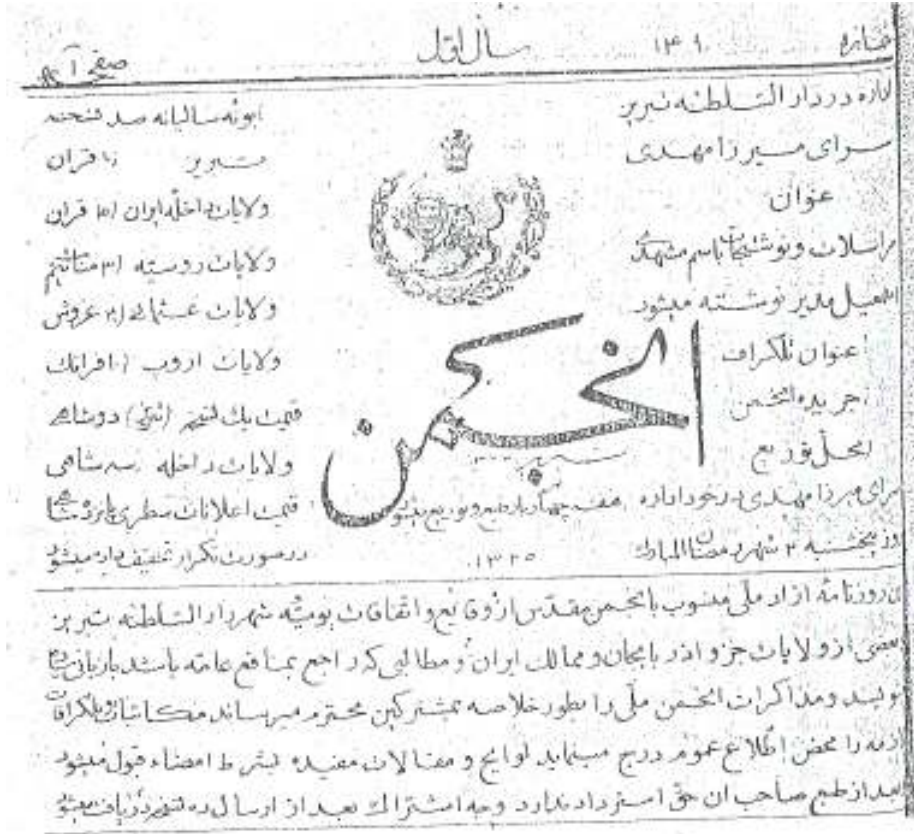 نمازه ۱۴۹ سال اول صفحه ۱
اداره در دار السلطنه تبریز
سرای میرزا مهدی
عنوان
مراسلات و نوشتجات باسم مشهدی
اسمعیل مدیر نوشته میشود
عنوان تلگراف
جریده انجمن
محل توزیع
سرای میرزا مهدی در خود اداره
روز پنجشنبه ۲ شهر رمضان المبارک ۱۳۲۵
انجمن
تبریز
هفته چهار بار طبع و توزیع میشود
ابونه سالیانه صد نسخه
تبریز قران
ولایات داخله ایران قران
ولایات روسیه ۳ منات
ولایات عثمانی غروش
ولایات اروپ فرانک
قیمت یک نسخه دو شاهی
ولایات داخله سه شاهی
قیمت اعلانات سطری پانزده شاهی
در صورت تکرار تخفیف داده میشود
روزنامه ازاد ملی منسوب بانجمن مقدس از وقایع و اتفاقات یومیه شهر دار السلطنه تبریز
بعضی از ولایات جزو اذربایجان و ممالک ایران و مطالبی که راجع بمنافع عامه باشد
و مذاکرات انجمن ملی را بطور خلاصه بمشترکین محترم میرساند مکاتبات و تلگرافات
را محض اطلاع عموم درج مینماید لوایح و مقالات مفیده بشرط امضاء قبول میشود
بعد از طبع صاحب ان حق استرداد ندارد وجه اشتراک بعد از ارسال ده نسخه دریافت میشود